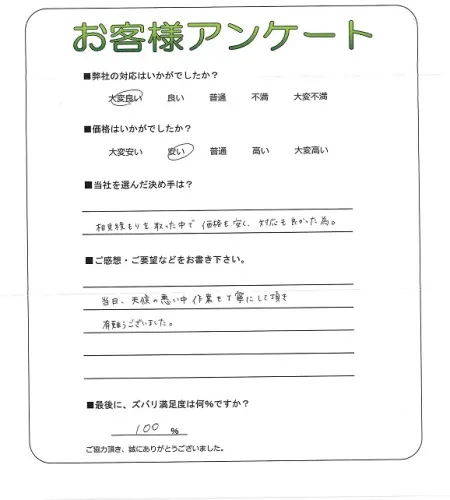 お客様アンケート
■弊社の対応はいかがでしたか？
大変良い 良い 普通 不満 大変不満
■価格はいかがでしたか？
大変安い 安い 普通 高い 大変高い
■当社を選んだ決め手は？
相見積もりを取った中で価格も安く、対応も良かった為。
■ご感想・ご要望などをお書き下さい。
当日、天候の悪い中作業も丁寧にして頂き
有難うございました。
■最後に、ズバリ満足度は何%ですか？
100 %
ご協力頂き、誠にありがとうございました。